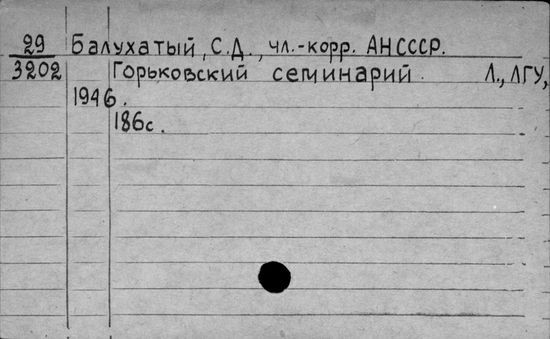 29 Балухатый, С.Д., чл.-корр. АНСССР.
3202 Горьковский семинарий. Л., ЛГУ,
1946.
186с.